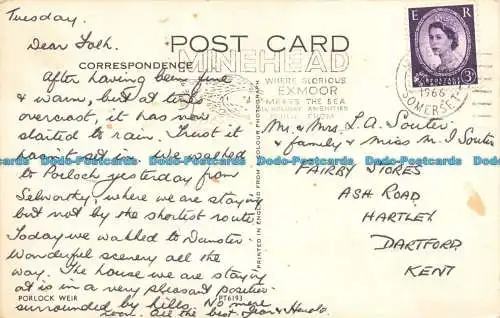 Tuesday.
Dear Folk.
POST CARD
CORRESPONDENCE
MINEHEAD
WHERE GLORIOUS
EXMOOR
MEETS THE SEA
HOLIDAY AMENITIES
FROM
E R
3D
1966
SOMERSET
After having been fine
& warm, but at times
overcast, it has now
started to rain. Trust it
isn't set in. We walked
to Porloch yesterday from
Selworthy, where we are staying
but not by the shortest route.
Today we walked to Dunster.
Wonderful scenery all the
way. The house we are staying
at is in a very pleasant position
surrounded by hills. No more
room. All the best Jean & Harold.
Mr. & Mrs. L. A. Souter
& family & Miss M. I Souter
FAIRBY STORES
ASH ROAD
HARTLEY
DARTFORD
KENT
PORLOCK WEIR
PT6193
PRINTED IN ENGLAND FROM A COLOUR PHOTOGRAPH
Dado-Postcards Dado-Postcards Dado-Postcards Dado-Postcards Dado-Postcards